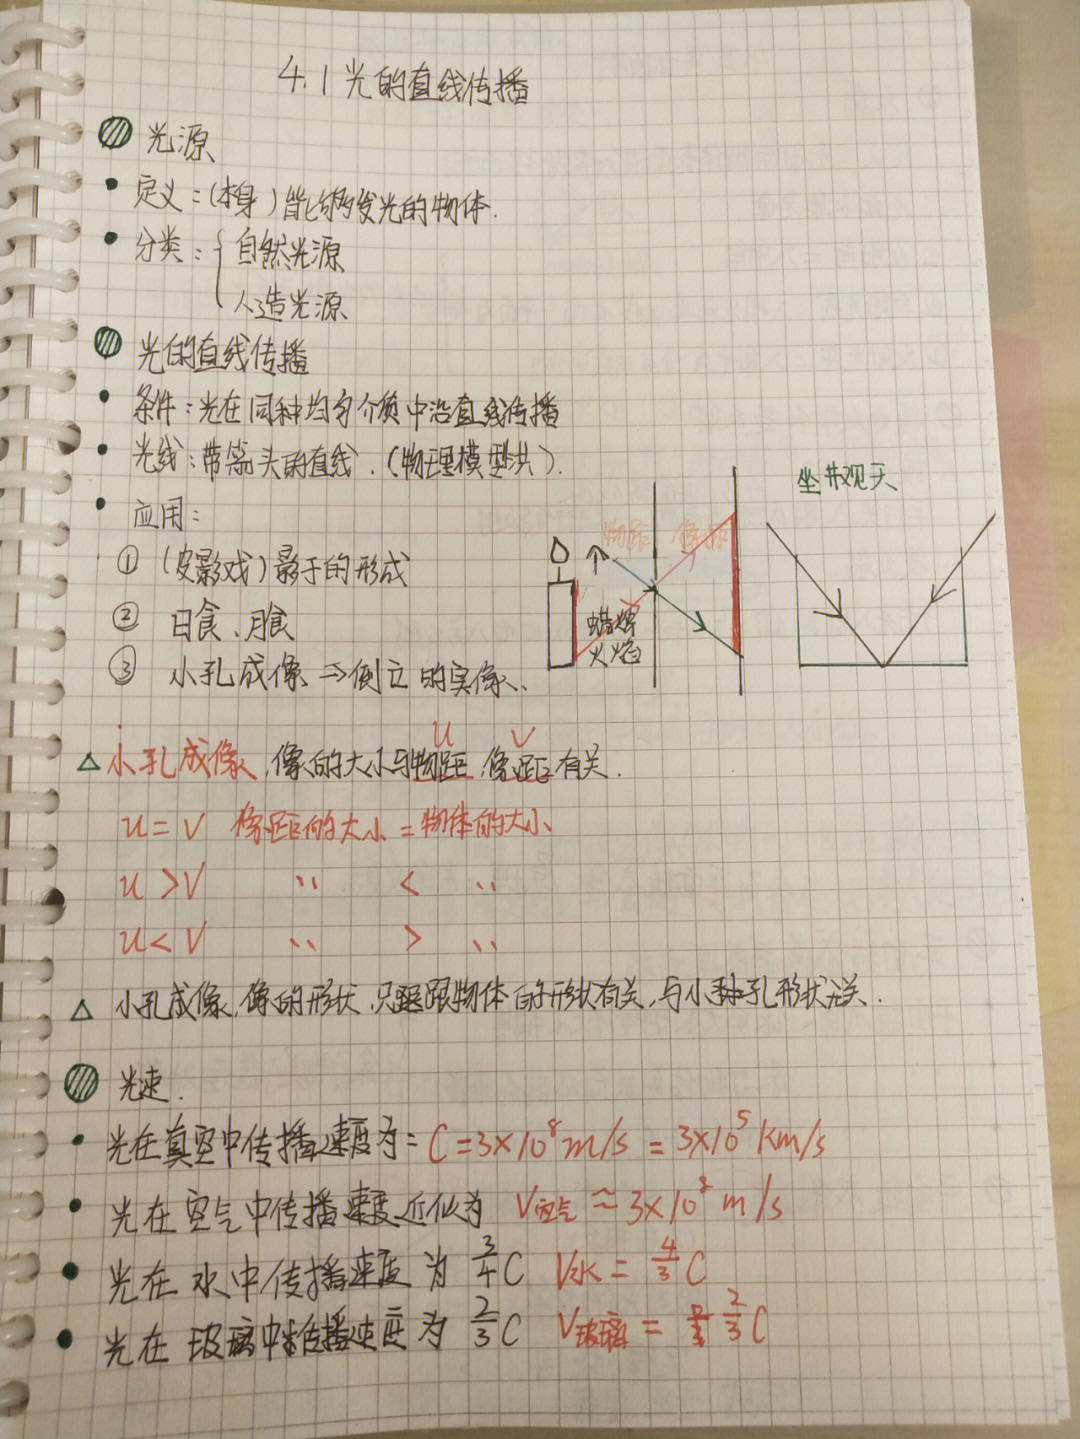 4.1 光的直线传播
光源
定义：(本身)能够发光的物体.
分类：{自然光源
人造光源
光的直线传播
条件：光在同种均匀介质中沿直线传播
光线：带箭头的直线.(物理模型法).
应用：
① (皮影戏)影子的形成
② 日食、月食
③ 小孔成像 ⇒倒立的实像.
物距 像距
蜡烛
火焰
坐井观天
u v
△ 小孔成像,像的大小与物距,像距有关.
u = v 像距的大小 = 物体的大小
u > v 〃 < 〃
u < v 〃 > 〃
△ 小孔成像,像的形状,只跟物体的形状有关,与小孔形状无关.
光速.
光在真空中传播速度为：C = 3×10⁸ m/s = 3×10⁵ km/s
光在空气中传播速度近似为 V空气 ≈ 3×10⁸ m/s
光在水中传播速度为 3/4 C V水 = 4/3 C
光在玻璃中传播速度为 2/3 C V玻璃 = 2/3 C